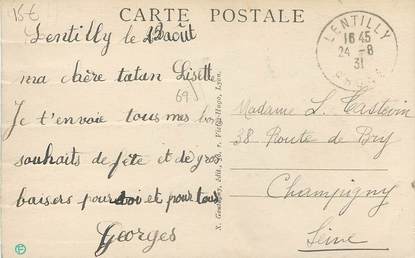 15€
CARTE POSTALE
Lentilly le 12 août
ma chère tatan Lisette
69
Je t'envoie tous mes bons
souhaits de fête et de gros
baisers pour toi et pour tous
Georges
LENTILLY
16 45
24 - 8
31
RHÔNE
Madame L.
38 Route de Bry
Champigny
Seine
édit., Victor-Hugo, Lyon.